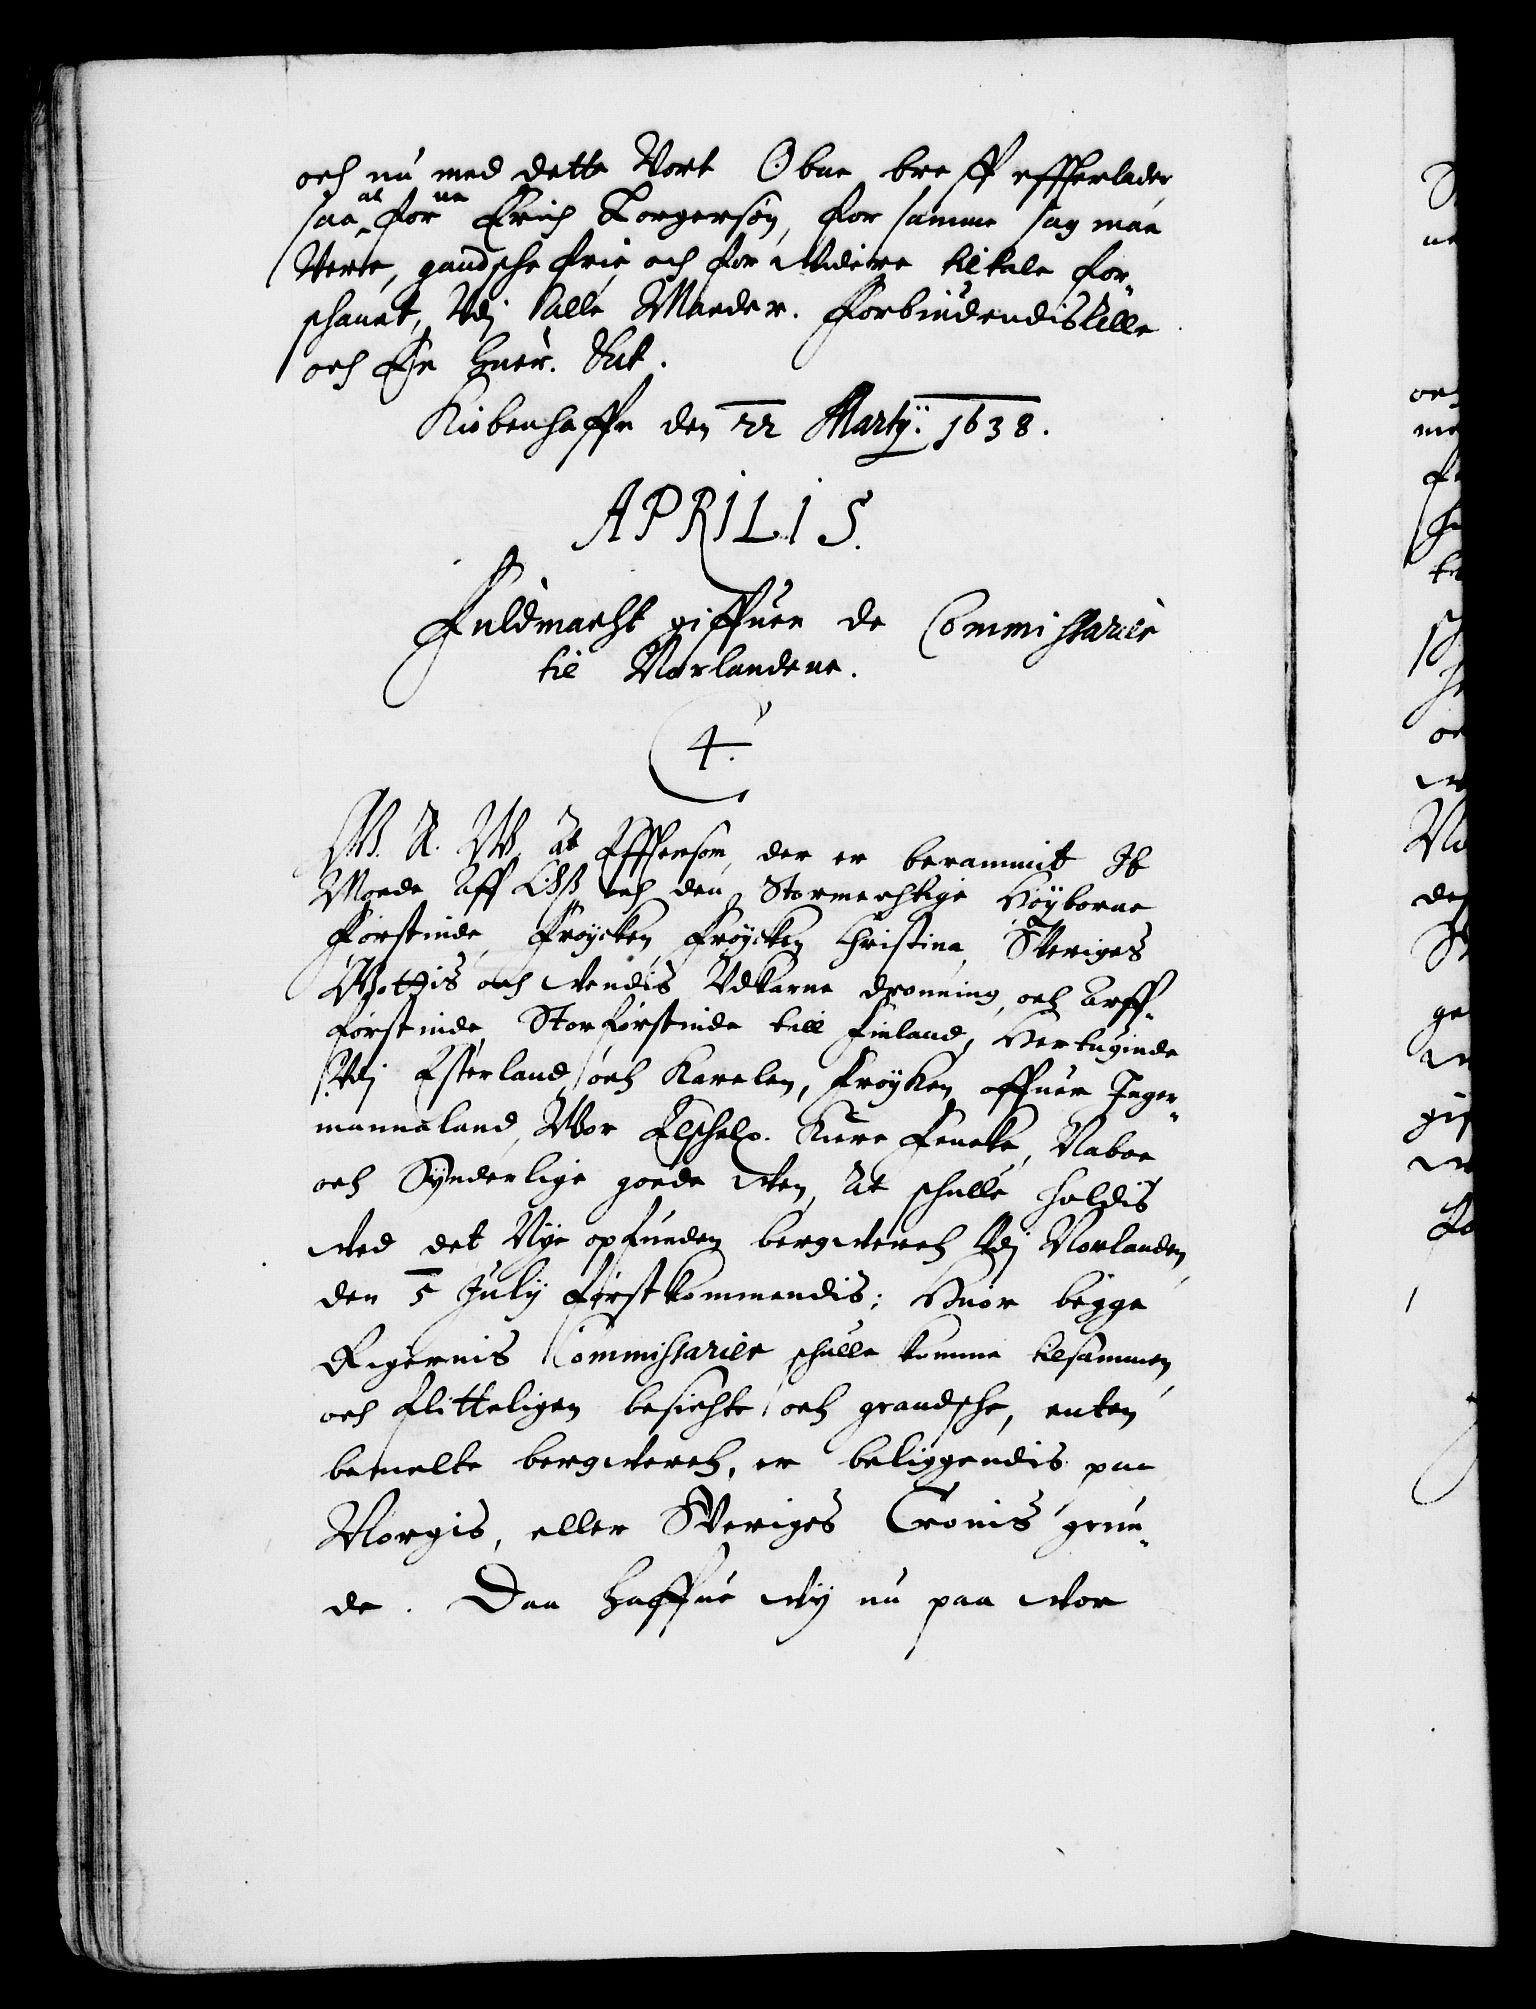 och nu med dette Vort Obne breff effterlader,
saa at forne Erich Torgersøn, for samme sag maa
Verre, gandsche frie och for widere tiltale for-
schaanet, Vdj alle Maader. Forbiudendis alle
och En huer. Vnt.
Kiøbenhaffn den 22 Martij: 1638.
APRILIS.
Fuldmacht giffuen de Commissarier
til Norlandene.
4.
W. A. W. at Efftersom, der er berammit It
Møde Aff Oß och den Stormechtige Høyborne
Førstinde, Frøyken, Frøyken Christina, Sveriges
Gottis och Vendis Vdkarne dronning, och Arff-
førstinde, Storførstinde till Finland, Hertuginde
Vdj Esterland och Karelen, Frøyken offuer Inger-
manneland, Wor Elschel. Kiere Frencke, Naboe
och Synderlige goede Ven, At schulle holdis
Ved det Nye opfunden bergwerch Vdj Norlanden,
den 5 Julij førstkommendis; Huor begge
Rigernis Commissarier schulle komme tilsammen,
och flitteligen besichte och grandsche, enten
bemelte bergwerch, er beliggendis paa
Norgis, eller Sveriges Cronis grun-
de. Daa haffue wij nu paa Vor